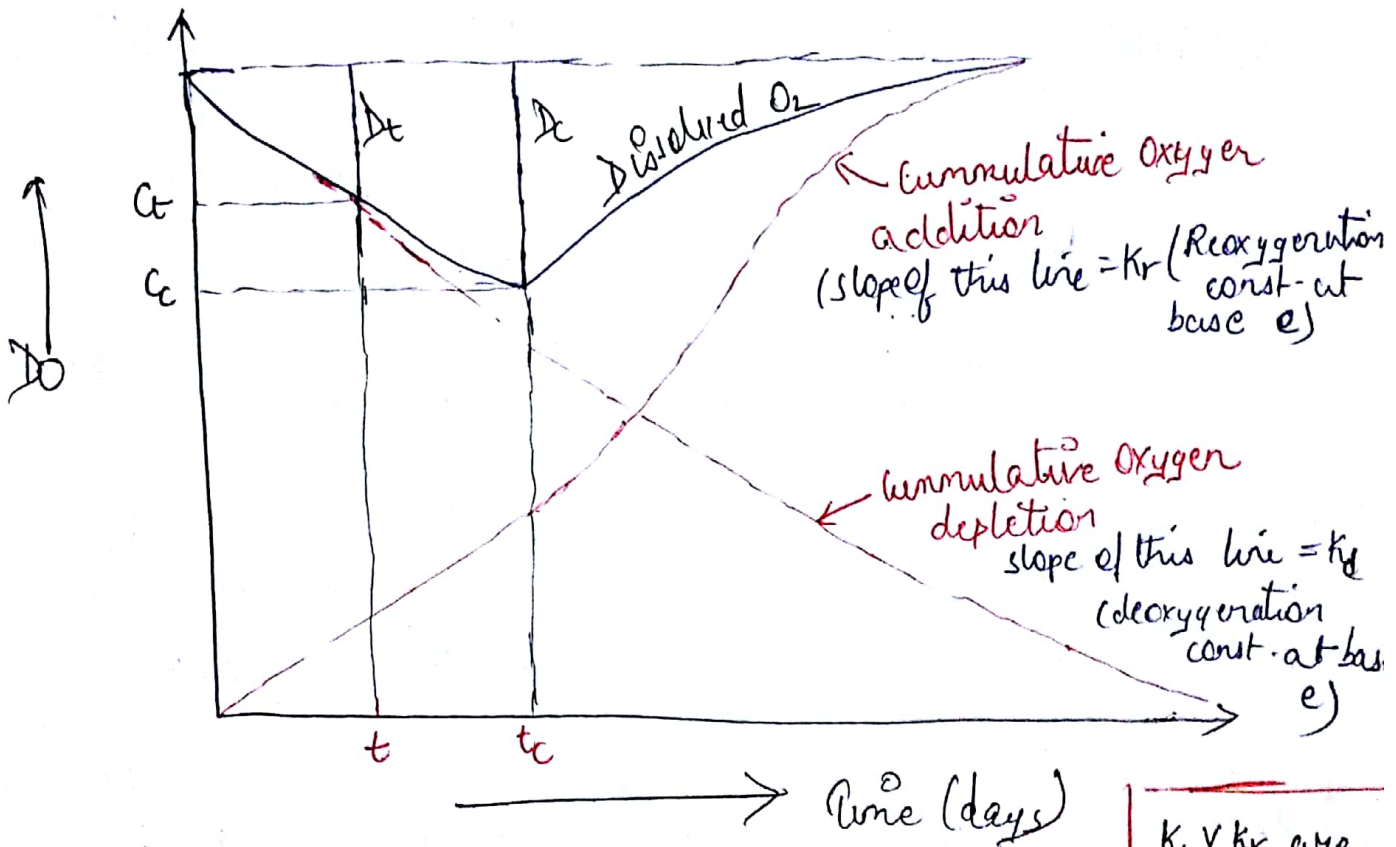 Dt
Dc
Dissolved O2
Ct
Cc
DO
Cummulative Oxyger
addition
(slope of this line = Kr (Reoxygenation
const. at
base e)
Cummulative Oxygen
depletion
slope of this line = Kd
(deoxygenation
const. at bas
e)
t
tc
Time (days)
Kr are